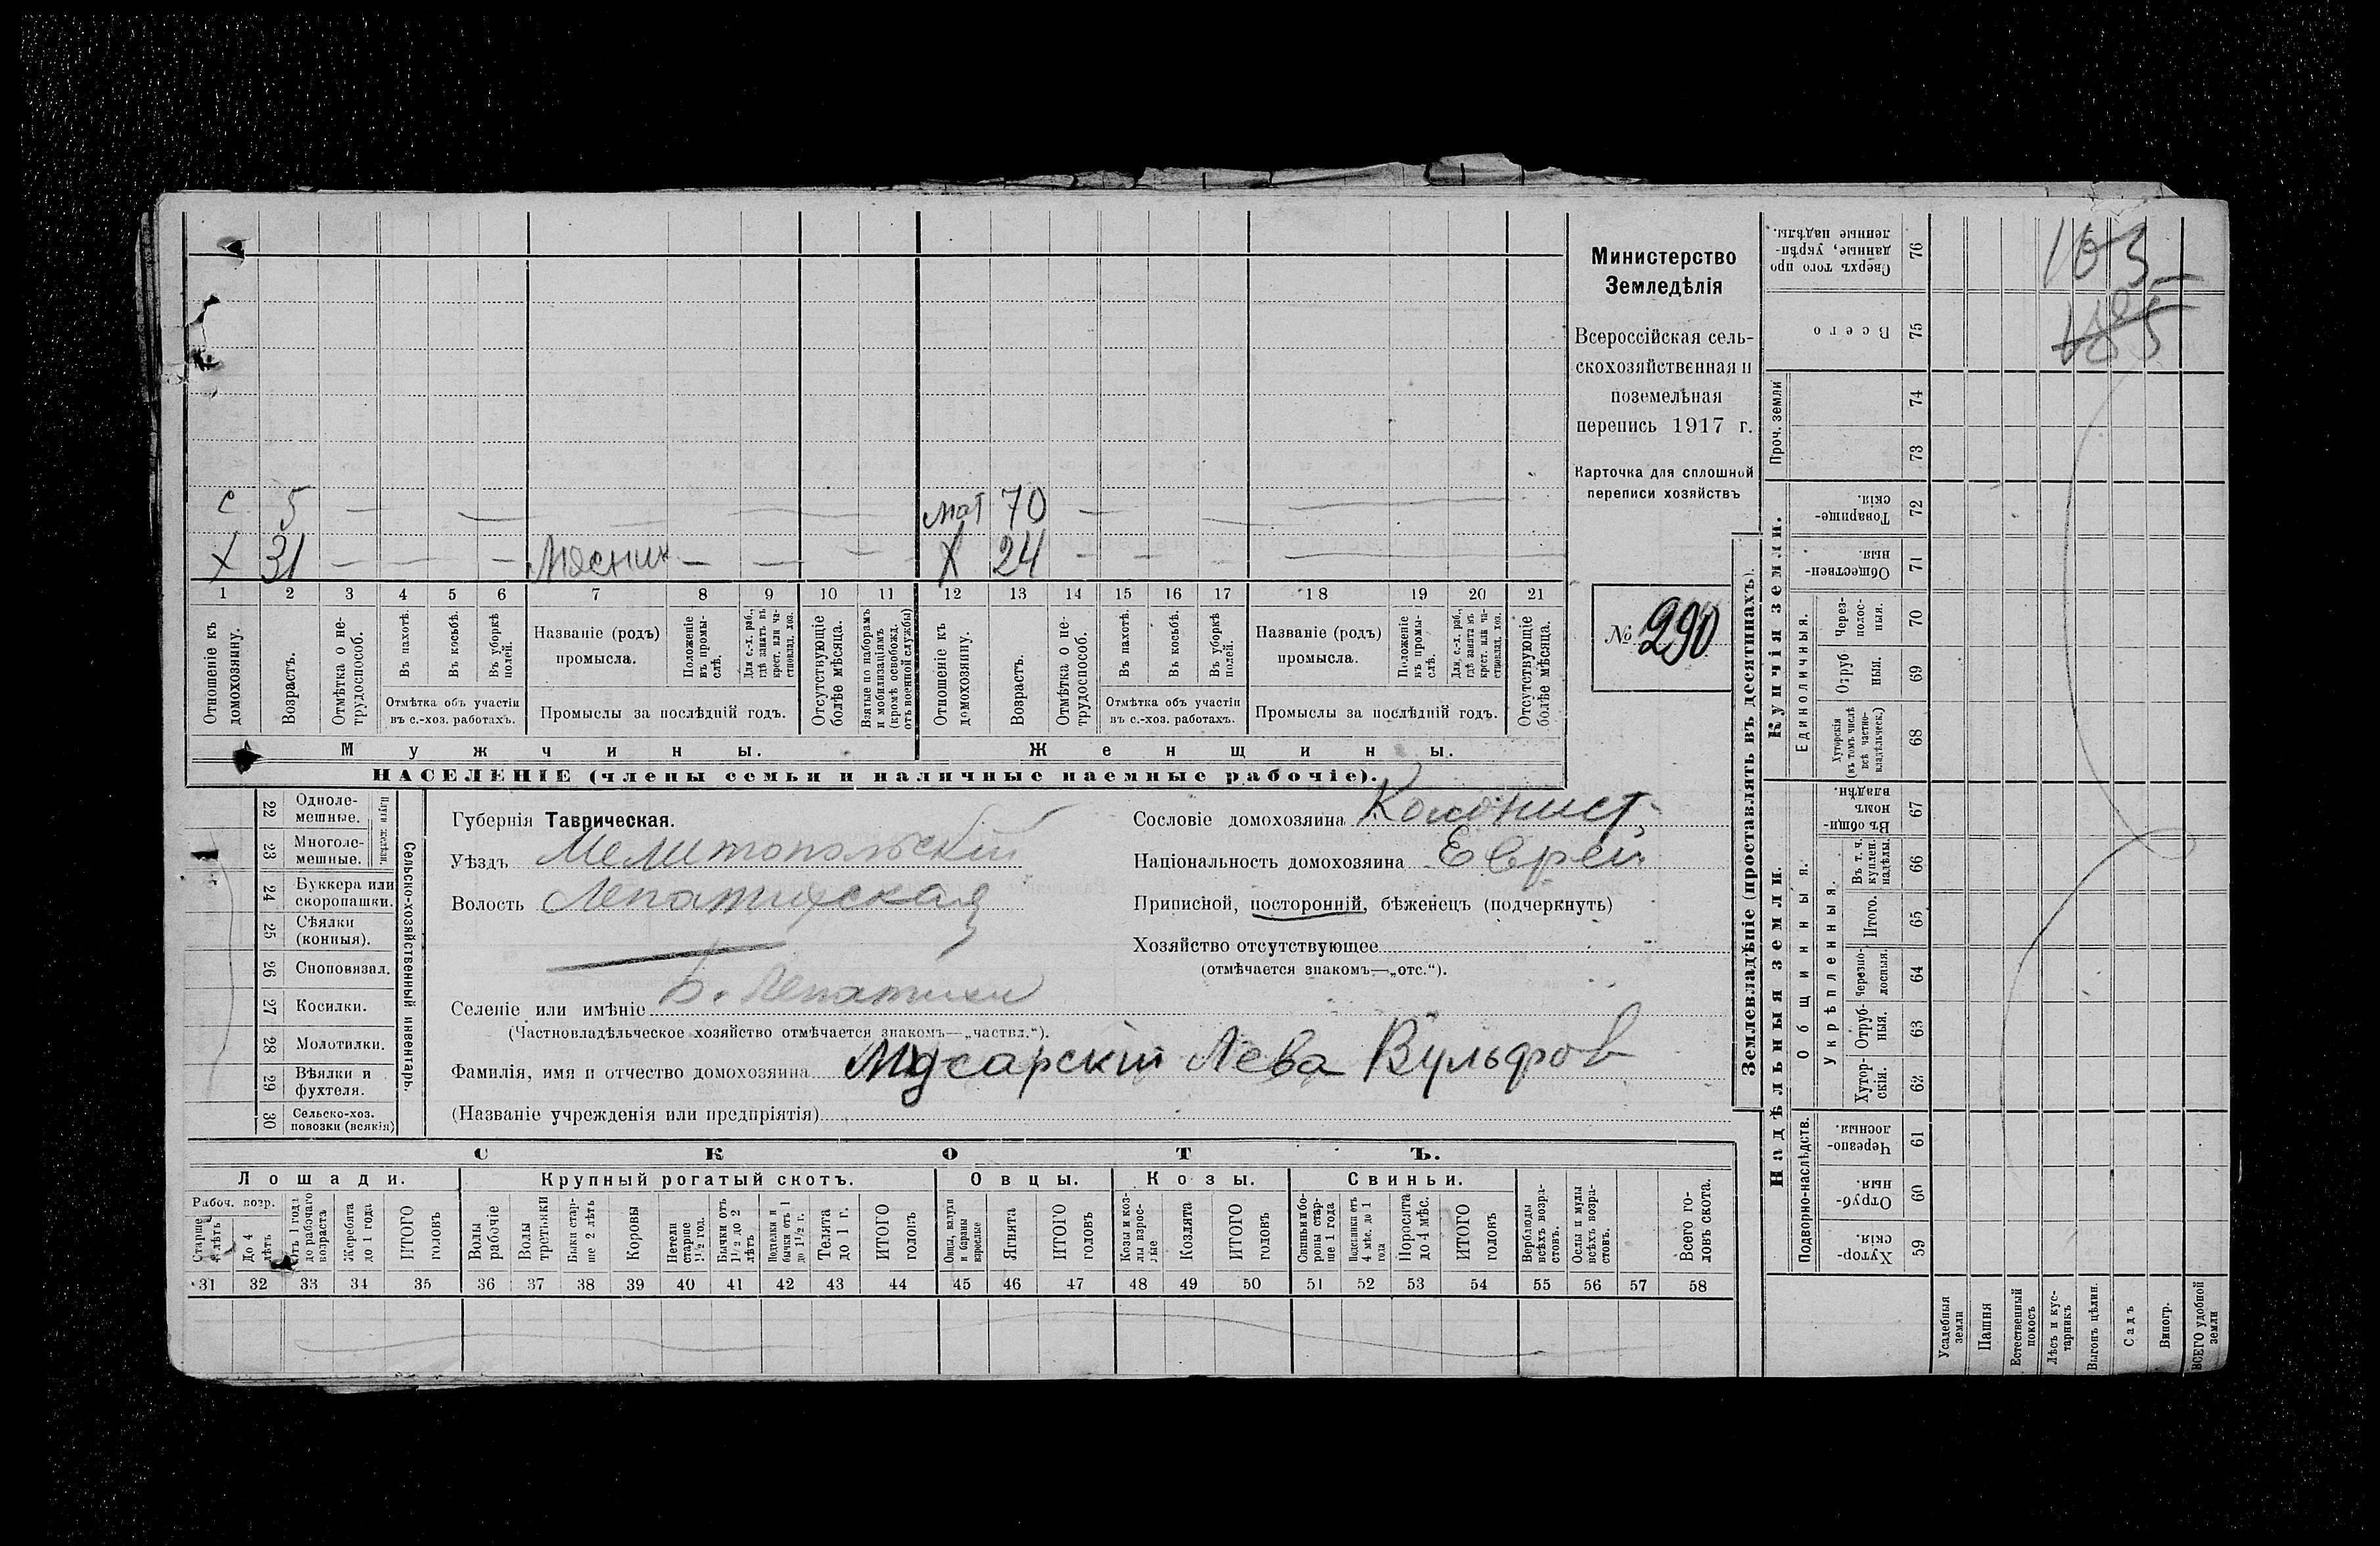 с 5 — — — — мат 70 — — —
Х 31 — — — Мясник — — — Х 24 — — —
1 2 3 4 5 6 7 8 9 10 11 12 13 14 15 16 17 18 19 20 21
Отношеніе къ домохозяину.
Возрастъ.
Отмѣтка о нетрудоспособ.
Въ пахотѣ.
Въ косьбѣ.
Въ уборкѣ полей.
Отмѣтка объ участіи въ с.-хоз. работахъ.
Названіе (родъ) промысла.
Положеніе въ промыслѣ.
Для с.-х. раб., гдѣ занятъ въ крест. или частновлад. хоз.
Промыслы за послѣдній годъ.
Отсутствующіе болѣе мѣсяца.
Взятые по наборамъ и мобилизаціямъ (кромѣ освобожд. отъ военной службы)
Отношеніе къ домохозяину.
Возрастъ.
Отмѣтка о нетрудоспособ.
Въ пахотѣ.
Въ косьбѣ.
Въ уборкѣ полей.
Отмѣтка объ участіи въ с.-хоз. работахъ.
Названіе (родъ) промысла.
Положеніе въ промыслѣ.
Для с.-х. раб., гдѣ заняты въ крест. или частновлад. хоз.
Промыслы за послѣдній годъ.
Отсутствующіе болѣе мѣсяца.
Мужчины.
Женщины.
НАСЕЛЕНІЕ (члены семьи и наличные наемные рабочіе).
Министерство
Земледѣлія
Всероссійская сель-
скохозяйственная и
поземельная
перепись 1917 г.
Карточка для сплошной
переписи хозяйствъ
№ 290
22 Одноле-мешные.
23 Многоле-мешные.
Плуги желѣзн.
24 Буккера или скоропашки.
25 Сѣялки (конныя).
26 Сноповязал.
27 Косилки.
28 Молотилки.
29 Вѣялки и фухтеля.
30 Сельско-хоз. повозки (всякія)
Сельско-хозяйственный инвентарь.
Губернія Таврическая.
Уѣздъ Мелитопольскій
Волость Лепатихская
Селеніе или имѣніе Б. Лепатихи
(Частновладѣльческое хозяйство отмѣчается знакомъ—„частвл.“).
Фамилія, имя и отчество домохозяина Мусарскій Лева Вульфов
(Названіе учрежденія или предпріятія)
Сословіе домохозяина Колонист.
Національность домохозяина Еврей
Приписной, посторонній, бѣженецъ (подчеркнуть)
Хозяйство отсутствующее
(отмѣчается знакомъ—„отс.“).
СКОТЪ.
Лошади. Крупный рогатый скотъ. Овцы. Козы. Свиньи.
Рабоч. возр.
Старше 4 лѣтъ
До 4 лѣтъ
Отъ 1 года до рабочаго возраста
Жеребята до 1 года
ИТОГО головъ
Волы рабочіе
Волы третьяки
Быки старше 2 лѣтъ
Коровы
Нетели старше 1½ год.
Бычки отъ 1½ до 2 лѣтъ
Подтелки и бычки отъ 1 до 1½ г.
Телята до 1 г.
ИТОГО головъ
Овцы, валухи и бараны взрослые
Ягнята
ИТОГО головъ
Козы и козлы взрослые
Козлята
ИТОГО головъ
Свиньи и боровы старше 1 года
Подсвинки отъ 4 мѣс. до 1 года
Поросята до 4 мѣс.
ИТОГО головъ
Верблюды всѣхъ возрастовъ.
Ослы и мулы всѣхъ возрастовъ.
Всего головъ скота.
31 32 33 34 35 36 37 38 39 40 41 42 43 44 45 46 47 48 49 50 51 52 53 54 55 56 57 58
Землевладѣніе (проставлять въ десятинахъ).
Купчія земли.
Надѣльныя земли.
Проч. земли
Единоличныя.
Общинныя.
Укрѣпленныя.
Подворно-наслѣдств.
Сверхъ того проданные, укрѣпленные надѣлы. 76
Всего 75
74
73
Товарищескія. 72
Общественныя 71
Чрезполосныя. 70
Отрубныя. 69
Хуторскія (въ томъ числѣ всѣ частновладѣльческ.) 68
Въ общинномъ владѣн. 67
Въ т. ч. куплен. надѣлы. 66
Итого. 65
Черезполосныя. 64
Отрубныя. 63
Хуторскія. 62
Черезполосныя. 61
Отрубныя. 60
Хуторскія. 59
Усадебныя земли
Пашня
Естественный покосъ
Лѣсъ и кустарникъ
Выгонъ цѣлин.
Садъ
Виногр.
ВСЕГО удобной земли